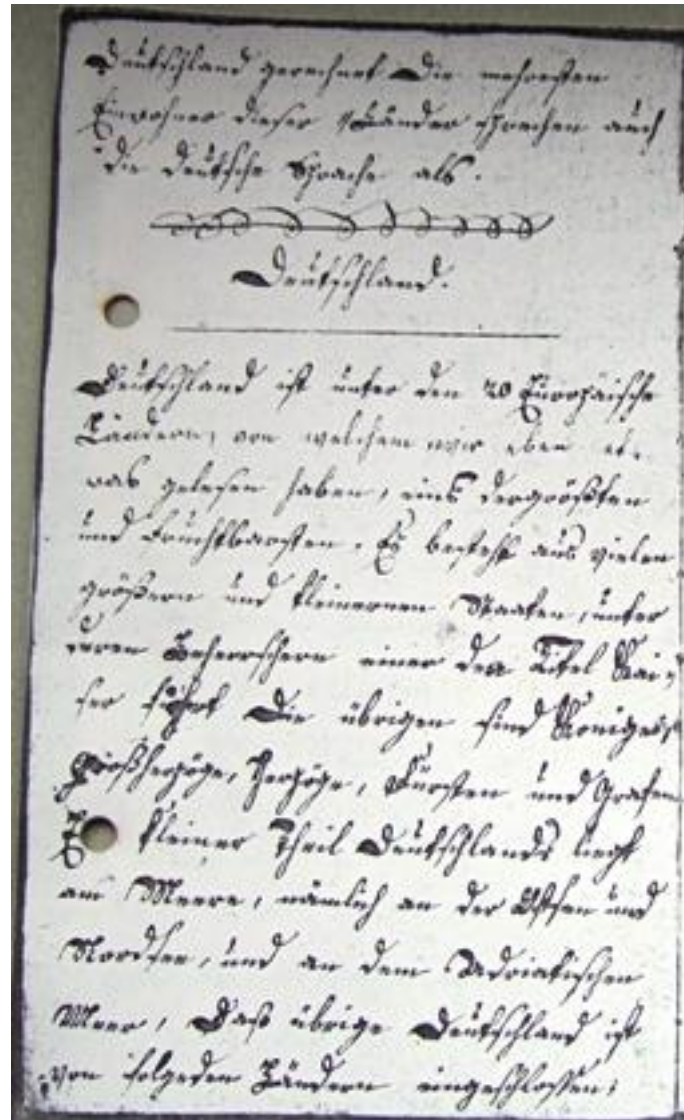 Deutschland gerechnet Die mehresten
Einwohner dieser Länder sprechen auch
die Deutsche Sprache als.
Deutschland.
Deutschland ist unter den 20 Europäische
Ländern, von welchem wir eben et-
was gelesen haben, eins der größten
und Fruchtbarsten. Es besteht aus vielen
größern und kleinernen Staaten, unter
deren Beherrschern einer den Titel Kai-
ser führt Die übrigen sind Könige,
Großherzöge, Herzöge, Fürsten und Grafen
kleiner Theil Deutschlands liegt
am Meere, nämlich an der Ostsee und
Nordsee, und an dem Adriatischen
Meer, Daß übrige Deutschland ist
von folgeden Ländern eingeschlossen: